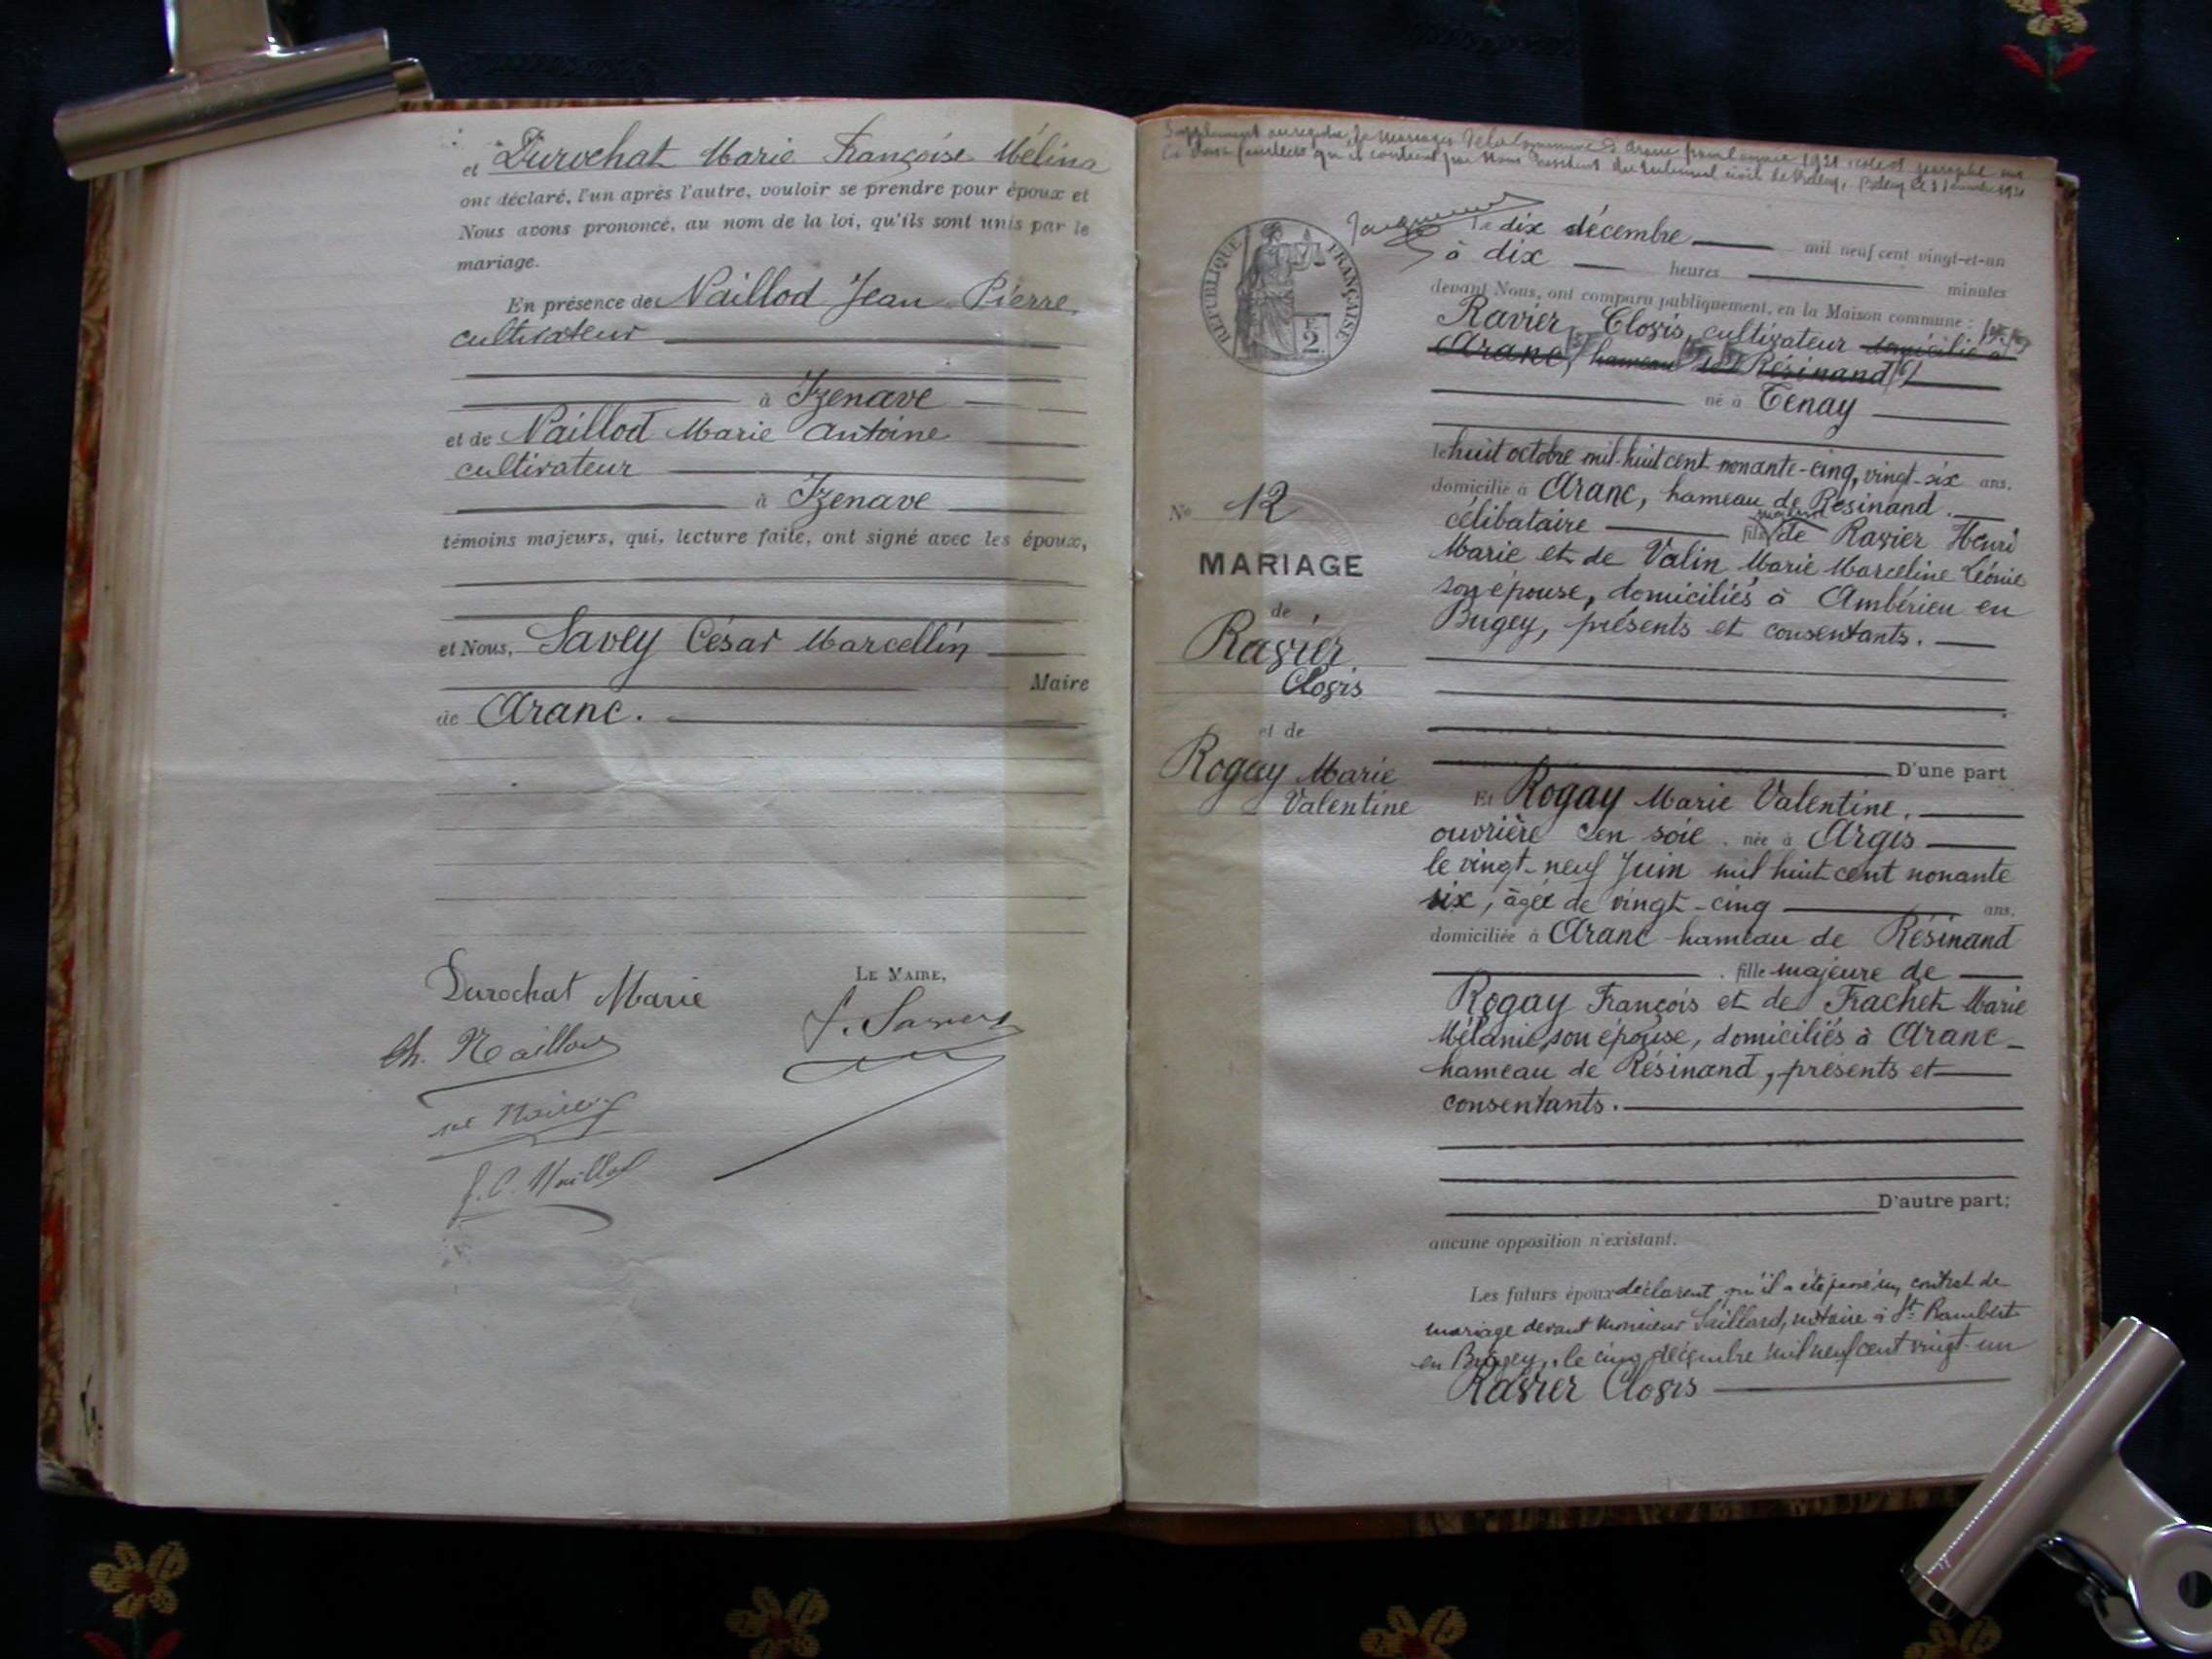 et Durochat Marie Françoise Mélina
ont déclaré, l'un après l'autre, vouloir se prendre pour époux et
Nous avons prononcé, au nom de la loi, qu'ils sont unis par le
mariage.
En présence de Naillod Jean Pierre,
cultivateur
à Izenave
et de Naillod Marie Antoine
cultivateur
à Izenave
témoins majeurs, qui, lecture faite, ont signé avec les époux,
et Nous, Savey César Marcellin
Maire
de Aranc.
Durochat Marie
LE MAIRE,
Ch. Naillod
Supplément au registre de Mariages de la Commune d'Aranc pour l'année 1921
RÉPUBLIQUE FRANÇAISE
2
le dix décembre mil neuf cent vingt-et-un
à dix heures minutes
devant Nous, ont comparu publiquement, en la Maison commune :
Ravier, Clovis, cultivateur domicilié à
Aranc, hameau de Résinand
né à Tenay
le huit octobre mil-huit cent nonante-cinq, vingt-six ans.
domicilié à Aranc, hameau de Résinand.
célibataire fils majeur de Ravier Henri
Marie et de Valin Marie Marceline Léonie
son épouse, domiciliés à Ambérieu en
Bugey, présents et consentants.
D'une part
No 12
MARIAGE
de
Ravier
Clovis
et de
Rogay Marie
Valentine
Et Rogay Marie Valentine,
ouvrière en soie, née à Argis
le vingt-neuf Juin mil huit cent nonante
six, âgée de vingt-cinq ans.
domiciliée à Aranc hameau de Résinand
, fille majeure de
Rogay François et de Frachet Marie
Mélanie son épouse, domiciliés à Aranc
hameau de Résinand, présents et
consentants.
D'autre part;
aucune opposition n'existant.
Les futurs époux déclarent qu'il a été passé un contrat de
mariage devant Monsieur Saillard, notaire à St Rambert
en Bugey, le cinq décembre mil neuf cent vingt-un
Ravier Clovis